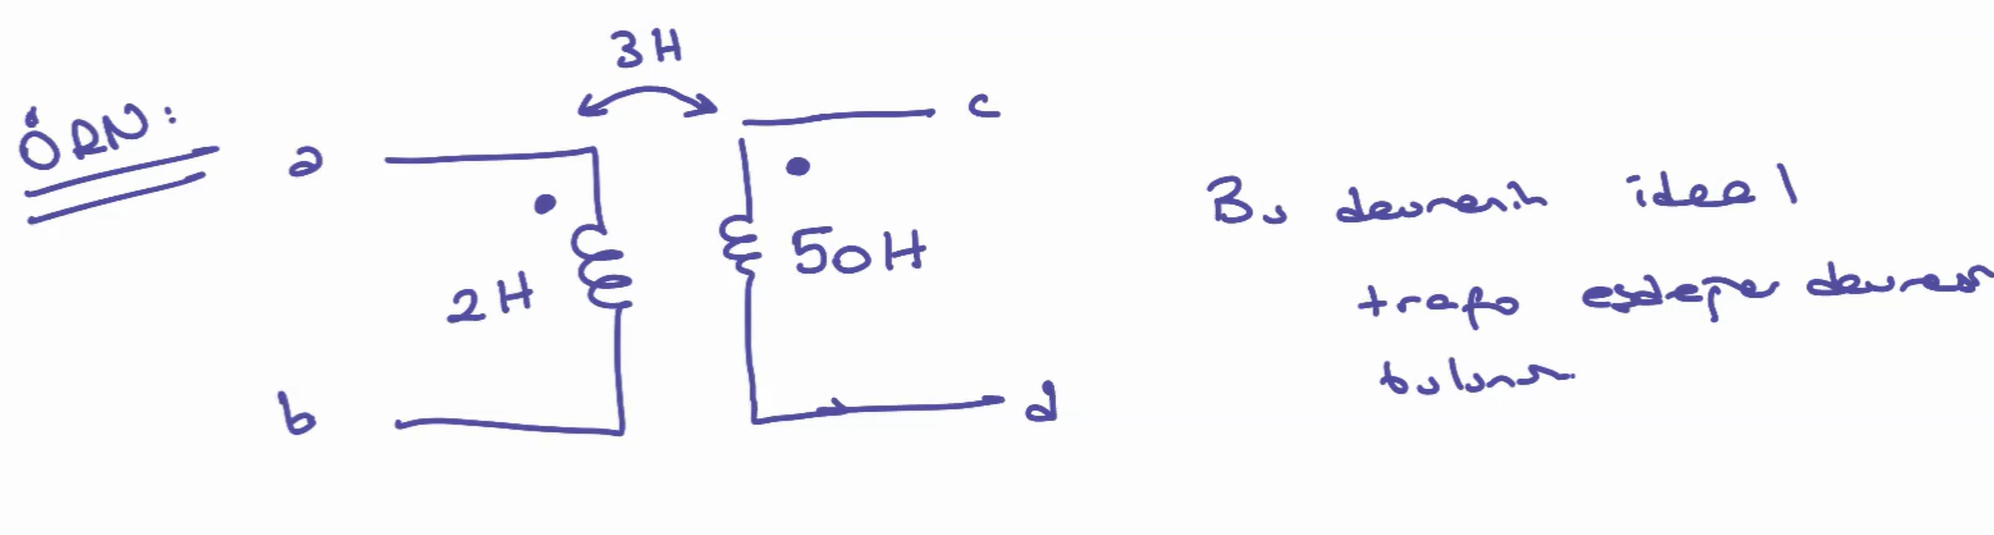 ÖRN:
3H
a
c
2H
50H
b
d
Bu devrenin ideal
trafo eşdeğer devresi
bulunuz.